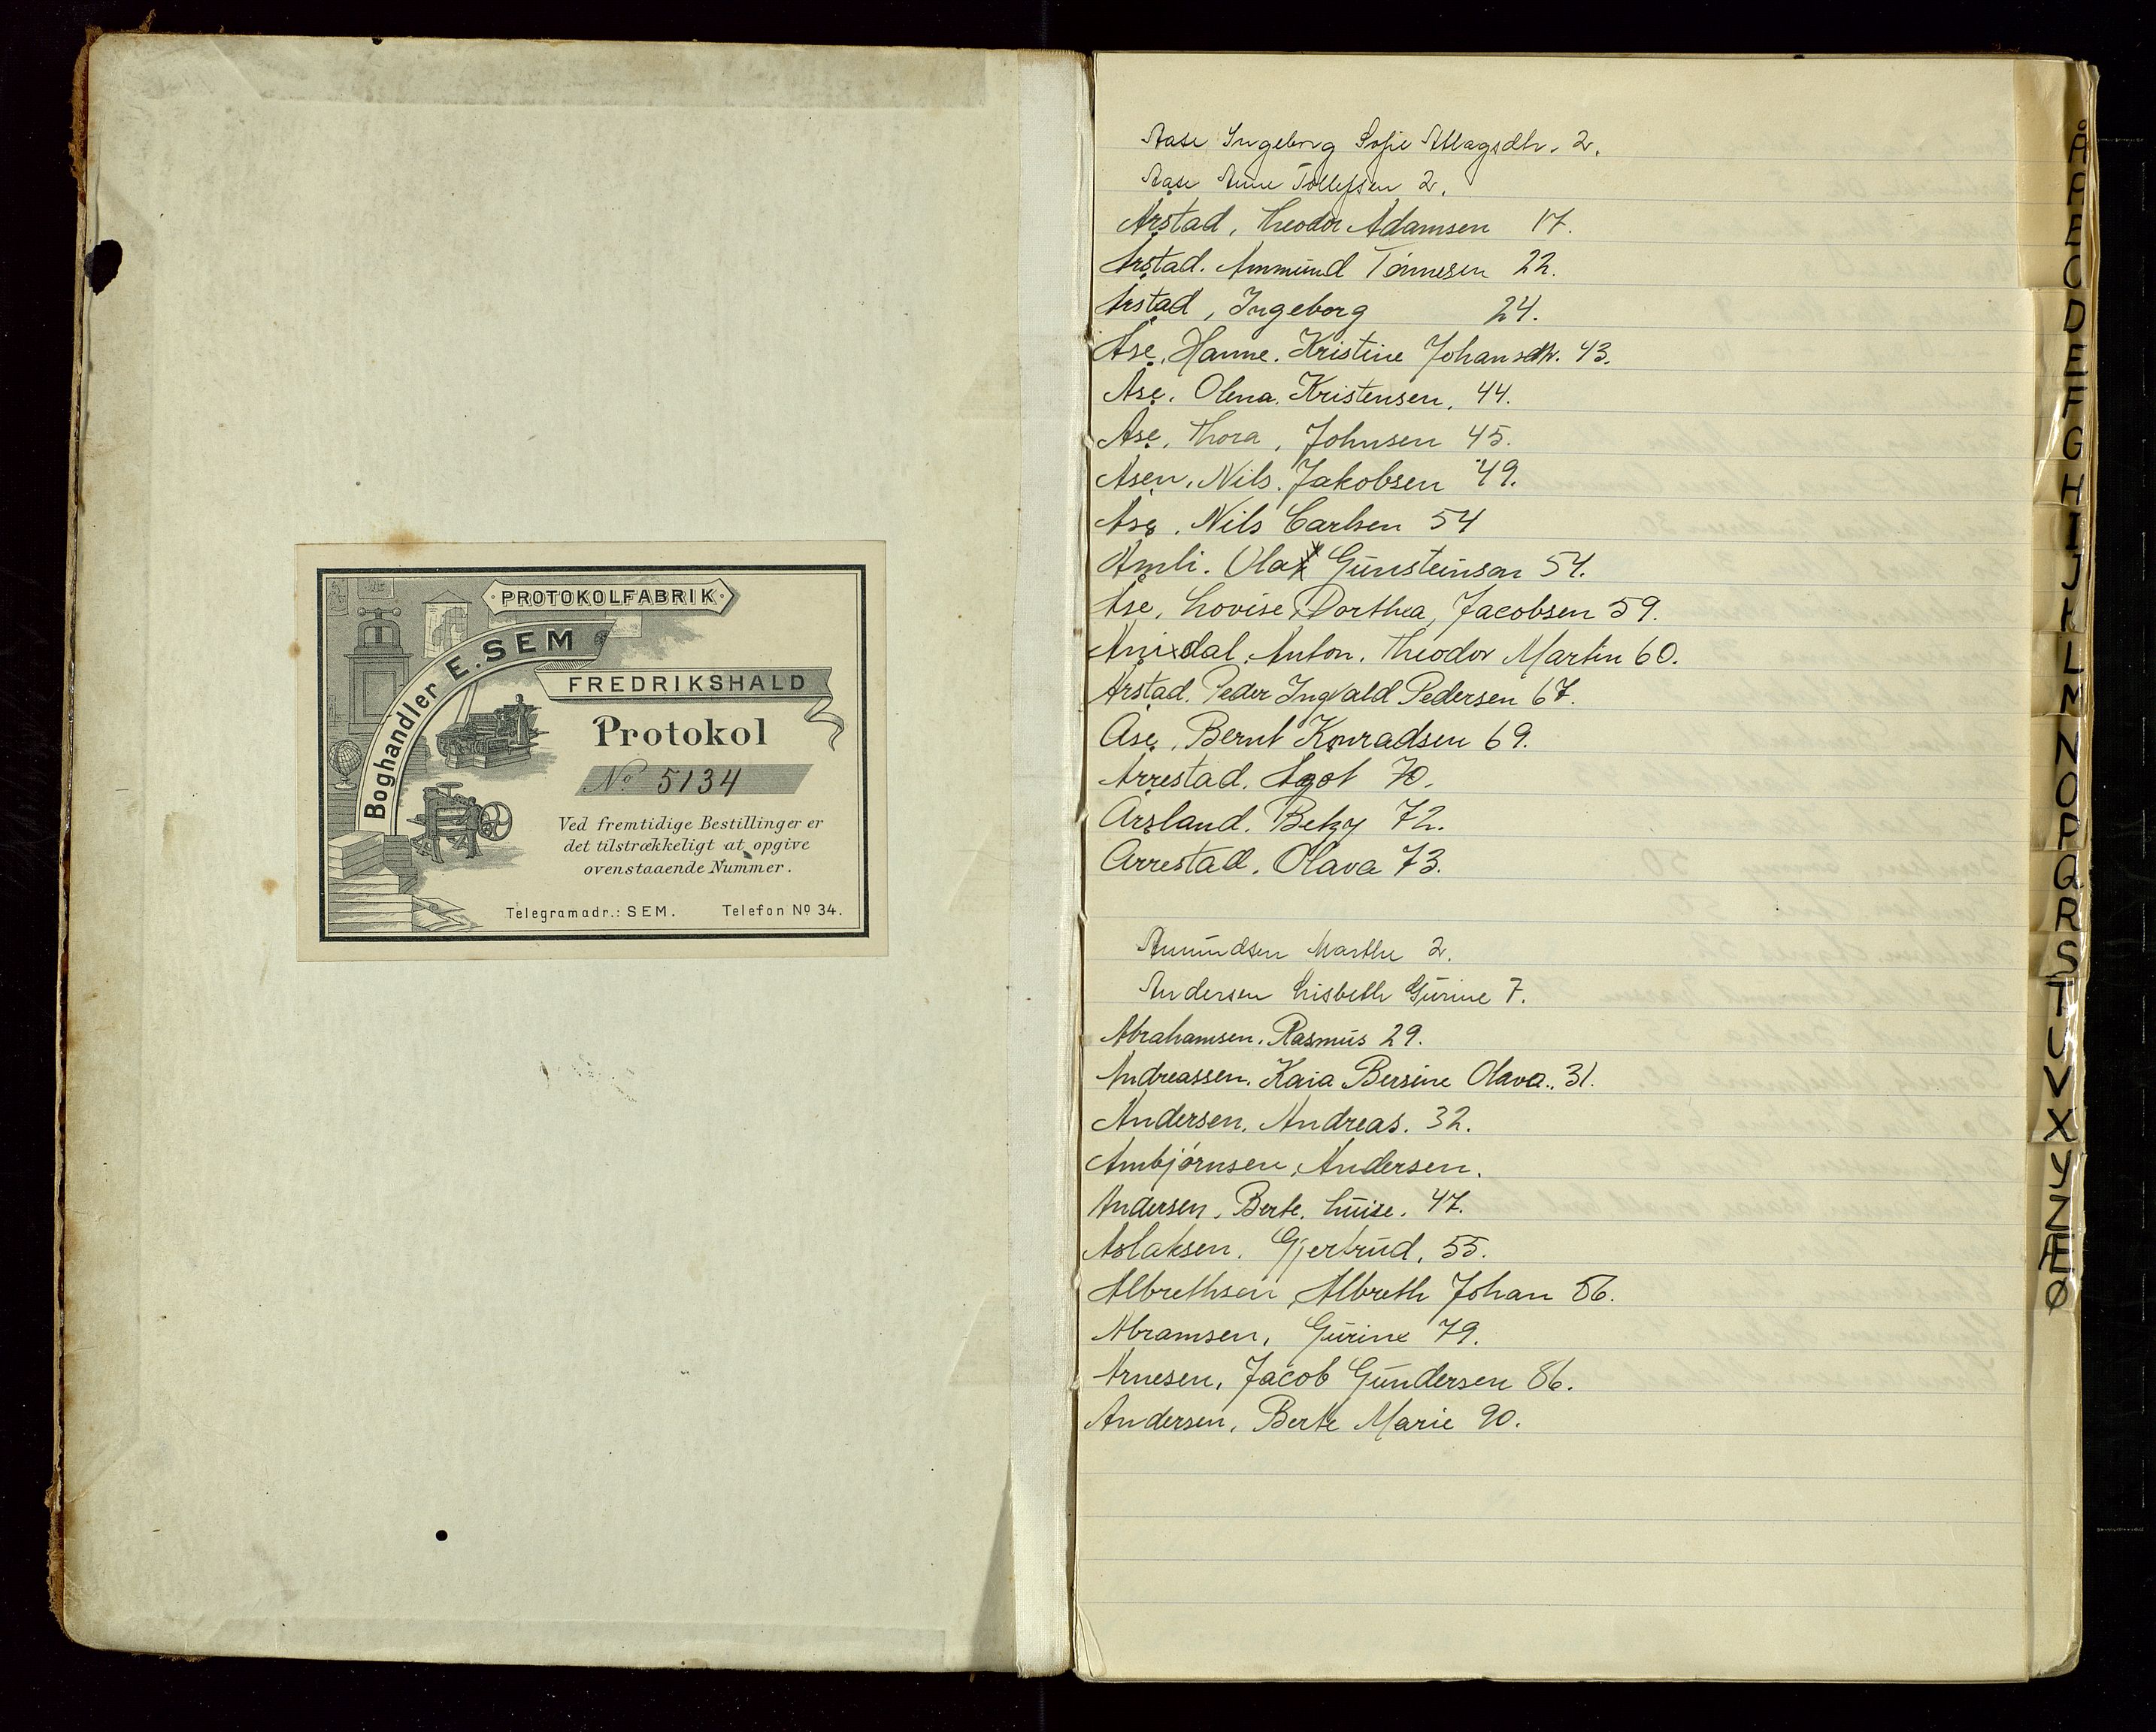 PROTOKOLFABRIK
Boghandler E. SEM
FREDRIKSHALD
Protokol
No 5134
Ved fremtidige Bestillinger er
det tilstrækkeligt at opgive
ovenstaaende Nummer.
Telegramadr.: SEM. Telefon No 34.
Aase Ingeborg Sofie Aslagsdtr. 2.
Aase Anne Tollefsen 2.
Årstad, Theodor Adamsen 17.
Årstad. Ammund Tønnesen 22.
Årstad, Ingeborg 24.
Åse, Hanne. Kristine Johansdtr. 43.
Åse. Olena. Kristensen, 44.
Åse, Thora, Johnsen 45.
Åsen, Nils. Jakobsen 49.
Åse, Nils Carlsen 54
Åmli. Ola Gunsteinson 54.
Åse, Lovise, Dorthea, Jacobsen 59.
Anton. Theodor Martin 60.
Årstad. Peder Ingvald Pedersen 67.
Åse, Bernt Konradsen 69.
Årrestad. Agot 70.
Årsland. Betzy 72.
Årrestad, Olava 73.
Amundsen Marthe 2.
Andersen Lisbeth Gurine 7.
Abrahamsen. Rasmus 29.
Andreassen. Kaia Bersine Olava.. 31.
Andersen. Andreas. 32.
Ambjørnsen, Andersen.
Andersen, Berte. Luise. 47.
Aslaksen. Gjertrud, 55.
Albrethsen, Albreth Johan 56.
Abramsen, Gurine 79.
Arnesen, Jacob Gundersen 86.
Andersen, Berte Marie 90.
Å
A
B
C
D
E
F
G
H
I
J
K
L
M
N
O
P
Q
R
S
T
U
V
X
Y
Z
Æ
Ø